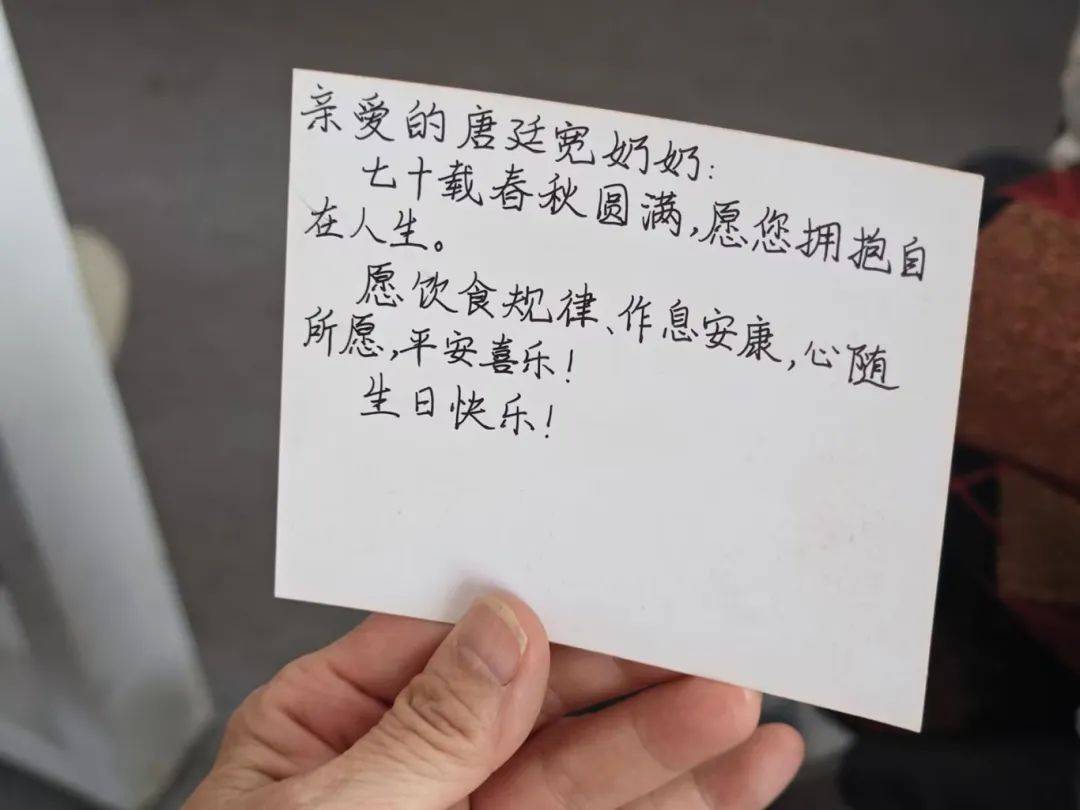 亲爱的唐廷宽奶奶:
七十载春秋圆满,愿您拥抱自
在人生。
愿饮食规律、作息安康,心随
所愿,平安喜乐!
生日快乐!